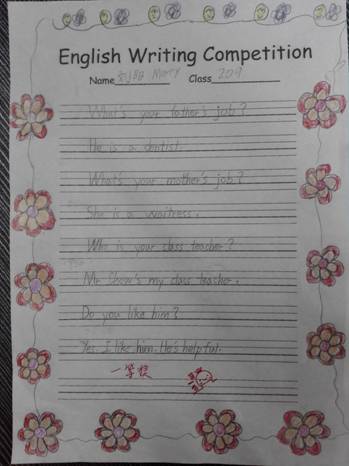 English Writing Competition
Name Mary Class 209
What's your father's job?
He is a dentist.
What's your mother's job?
She is a waitress.
Who is your class teacher?
Mr. Show's my class teacher.
Do you like him?
Yes. I like him. He's helpful.
一学校